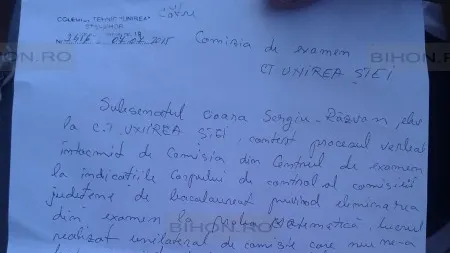 Către
COLEGIUL TEHNIC "UNIREA"
3417 07.07.2015
Comisia de examen
CT UNIREA ȘTEI
BIHON.RO BIHON.RO
Subsematul Ooara Sergiu-Răzvan, elev
la C.T UNIREA ȘTEI, contest procesul verbal
întocmit de Comisia din Centrul de examen
la indicațiile Corpului de control al comisiei
județene de bacalaureat privind eliminarea
din examen la proba Matematică, lucru
BIHON.RO BIHON.RO
realizat unilateral de comisie care nu